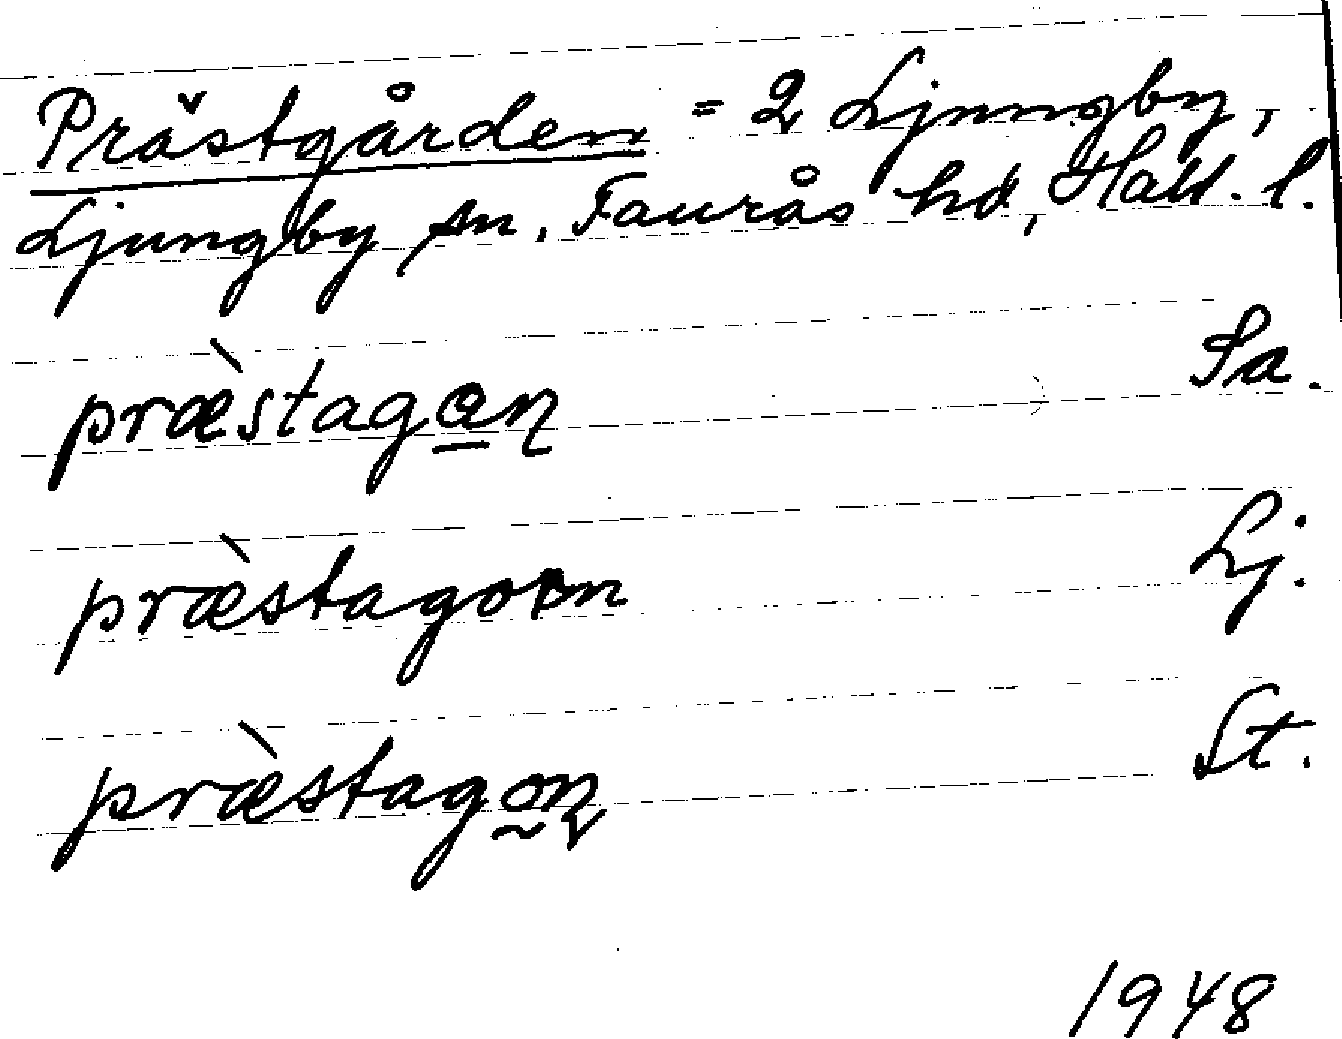 Prästgården = 2 Ljungby,
Ljungby sn, Faurås hd, Hall. l.
præ̀stagan̥ Sa.
præ̀stagorn Lj.
præ̀stagon St.
1948